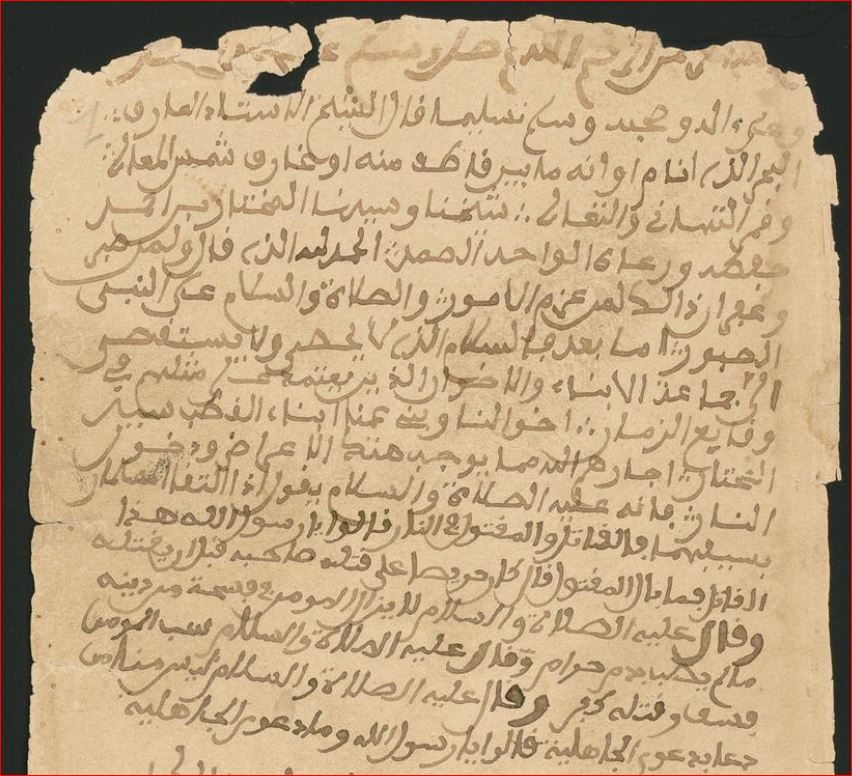 الرحمن الرحيم اللهم صل وسلم على
وعلى ءاله وصحبه وسلم تسليما قال الشيخ الاستاذ العارف
البحر الذي انام اوانه ما بين فاطف منه او غارف شمس المعالي
وقمر التهاني والتفاني شيخنا وسيدنا المختار بن احمد
حفظه ورعاه الواحد الصمد الحمد لله الذي قال ولمن صبر
وغفر ان ذالك لمن عزم الامور والصلاة والسلام على النبي
الصبور اما بعد فالسلام الذي لا يحصى ولا يستقصى
الى جماعة الابناء والاخوان الذين يعتمد على مثلهم في
وقايع الزمان اخوالنا وبني عمنا ابناء القطب سيد
المختار اجارهم الله مما يوجب هتك الاعراض ودخول
النار فانه عليه الصلاة والسلام يقول اذا التقا المسلمان
بسيفيهما فالقاتل والمقتول في النار قالوا يا رسول الله هذا
القاتل فما بال المقتول قال كان حريصا على قتل صاحبه قبل ان يقتله
وقال عليه الصلاة والسلام لا يزال المومن في فسحة من دينه
ما لم يصب دم حرام وقال عليه الصلاة والسلام سب المومن
فسق وقتله كفر وقال عليه الصلاة والسلام ليس منا من
دعا بدعوى الجاهلية قالوا يا رسول الله وما دعوى الجاهلية